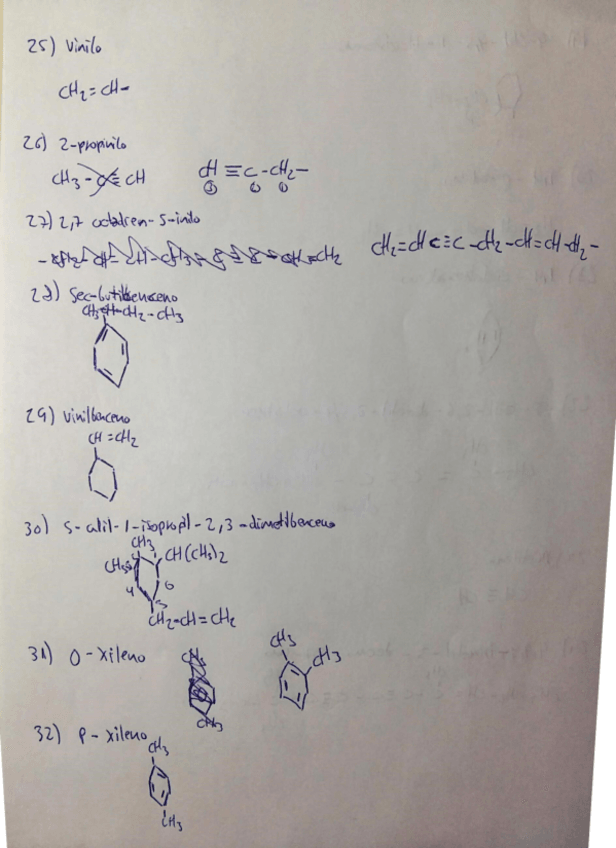 25) Vinilo
CH2=CH-
26) 2-propinilo
CH3-C≡CH CH≡C-CH2-
③ ② ①
27) 2,7 octadien-5-inilo
CH2=CH C≡C-CH2-CH=CH-CH2-
28) Sec-butilbenceno
CH3-CH-CH2-CH3
29) Vinilbenceno
CH=CH2
30) 5-alil-1-isopropil-2,3-dimetilbenceno
CH3
CH(CH3)2
CH3
4 6
5
CH2-CH=CH2
31) O-xileno CH3 CH3
CH3
CH3
32) P-xileno
CH3
CH3